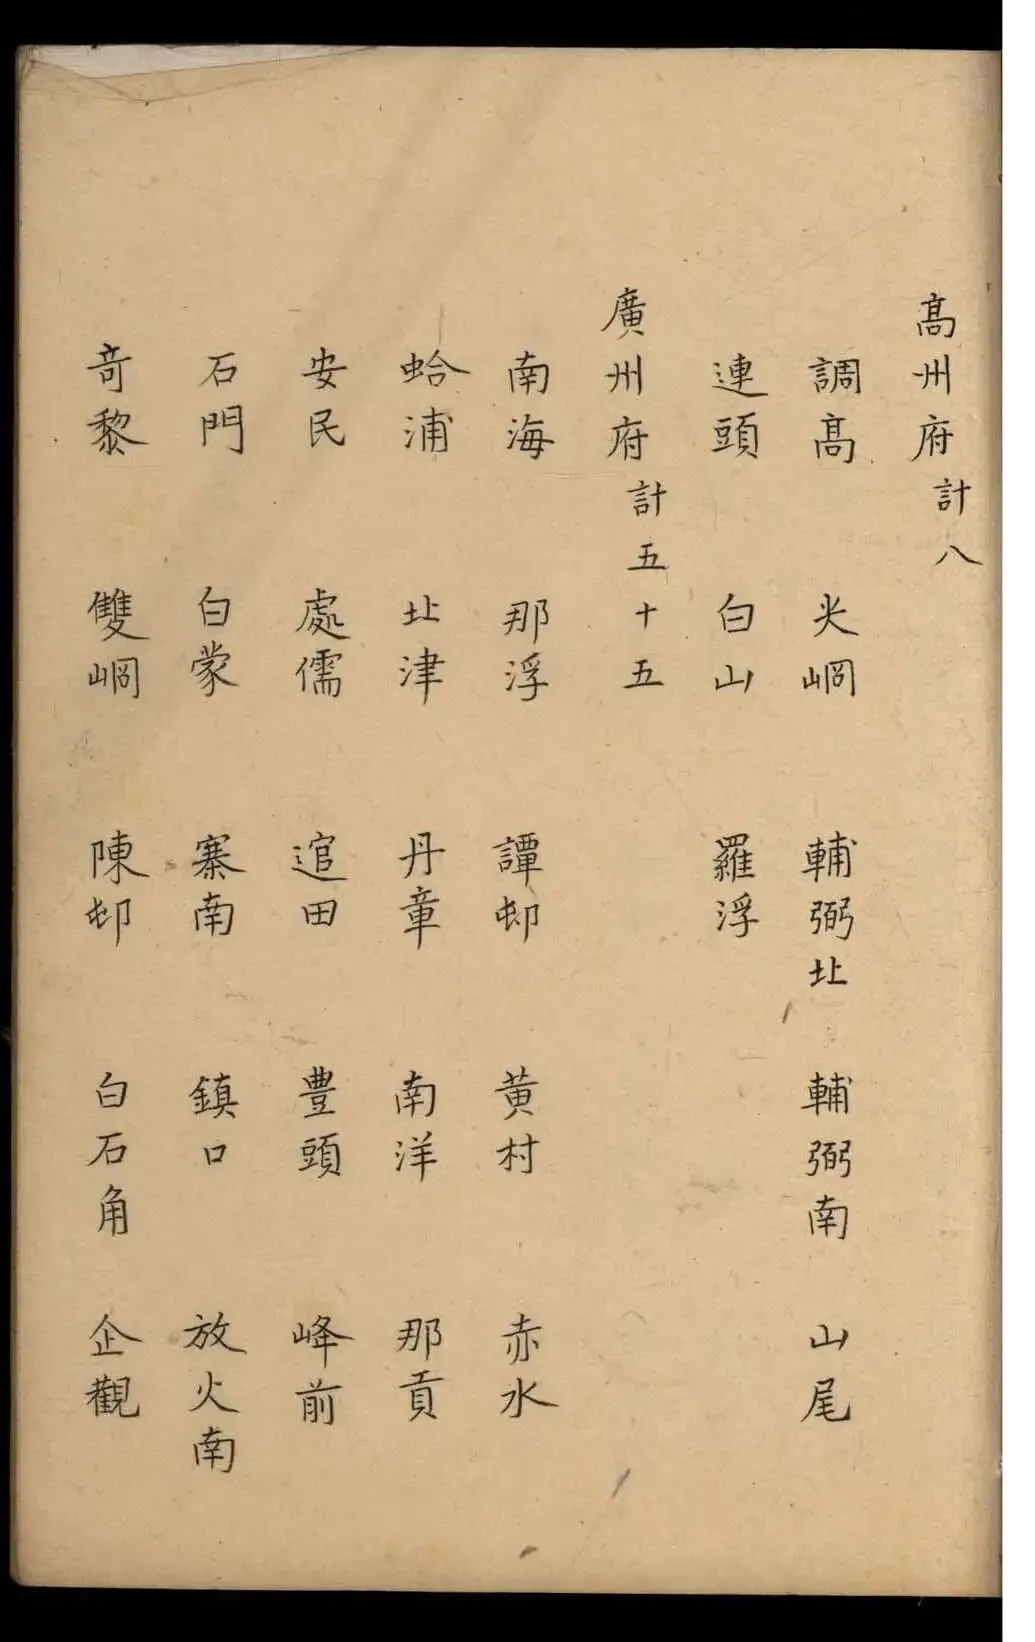 髙州府計八
調髙 火峒 輔弼北 輔弼南 山尾
連頭 白山 羅浮
廣州府計五十五
南海 那浮 譚邨 黃村 赤水
蛤浦 北津 丹章 南洋 那貢
安民 處儒 逭田 豊頭 峰前
石門 白蒙 寨南 鎮口 放火南
竒黎 雙峒 陳邨 白石角 企觀